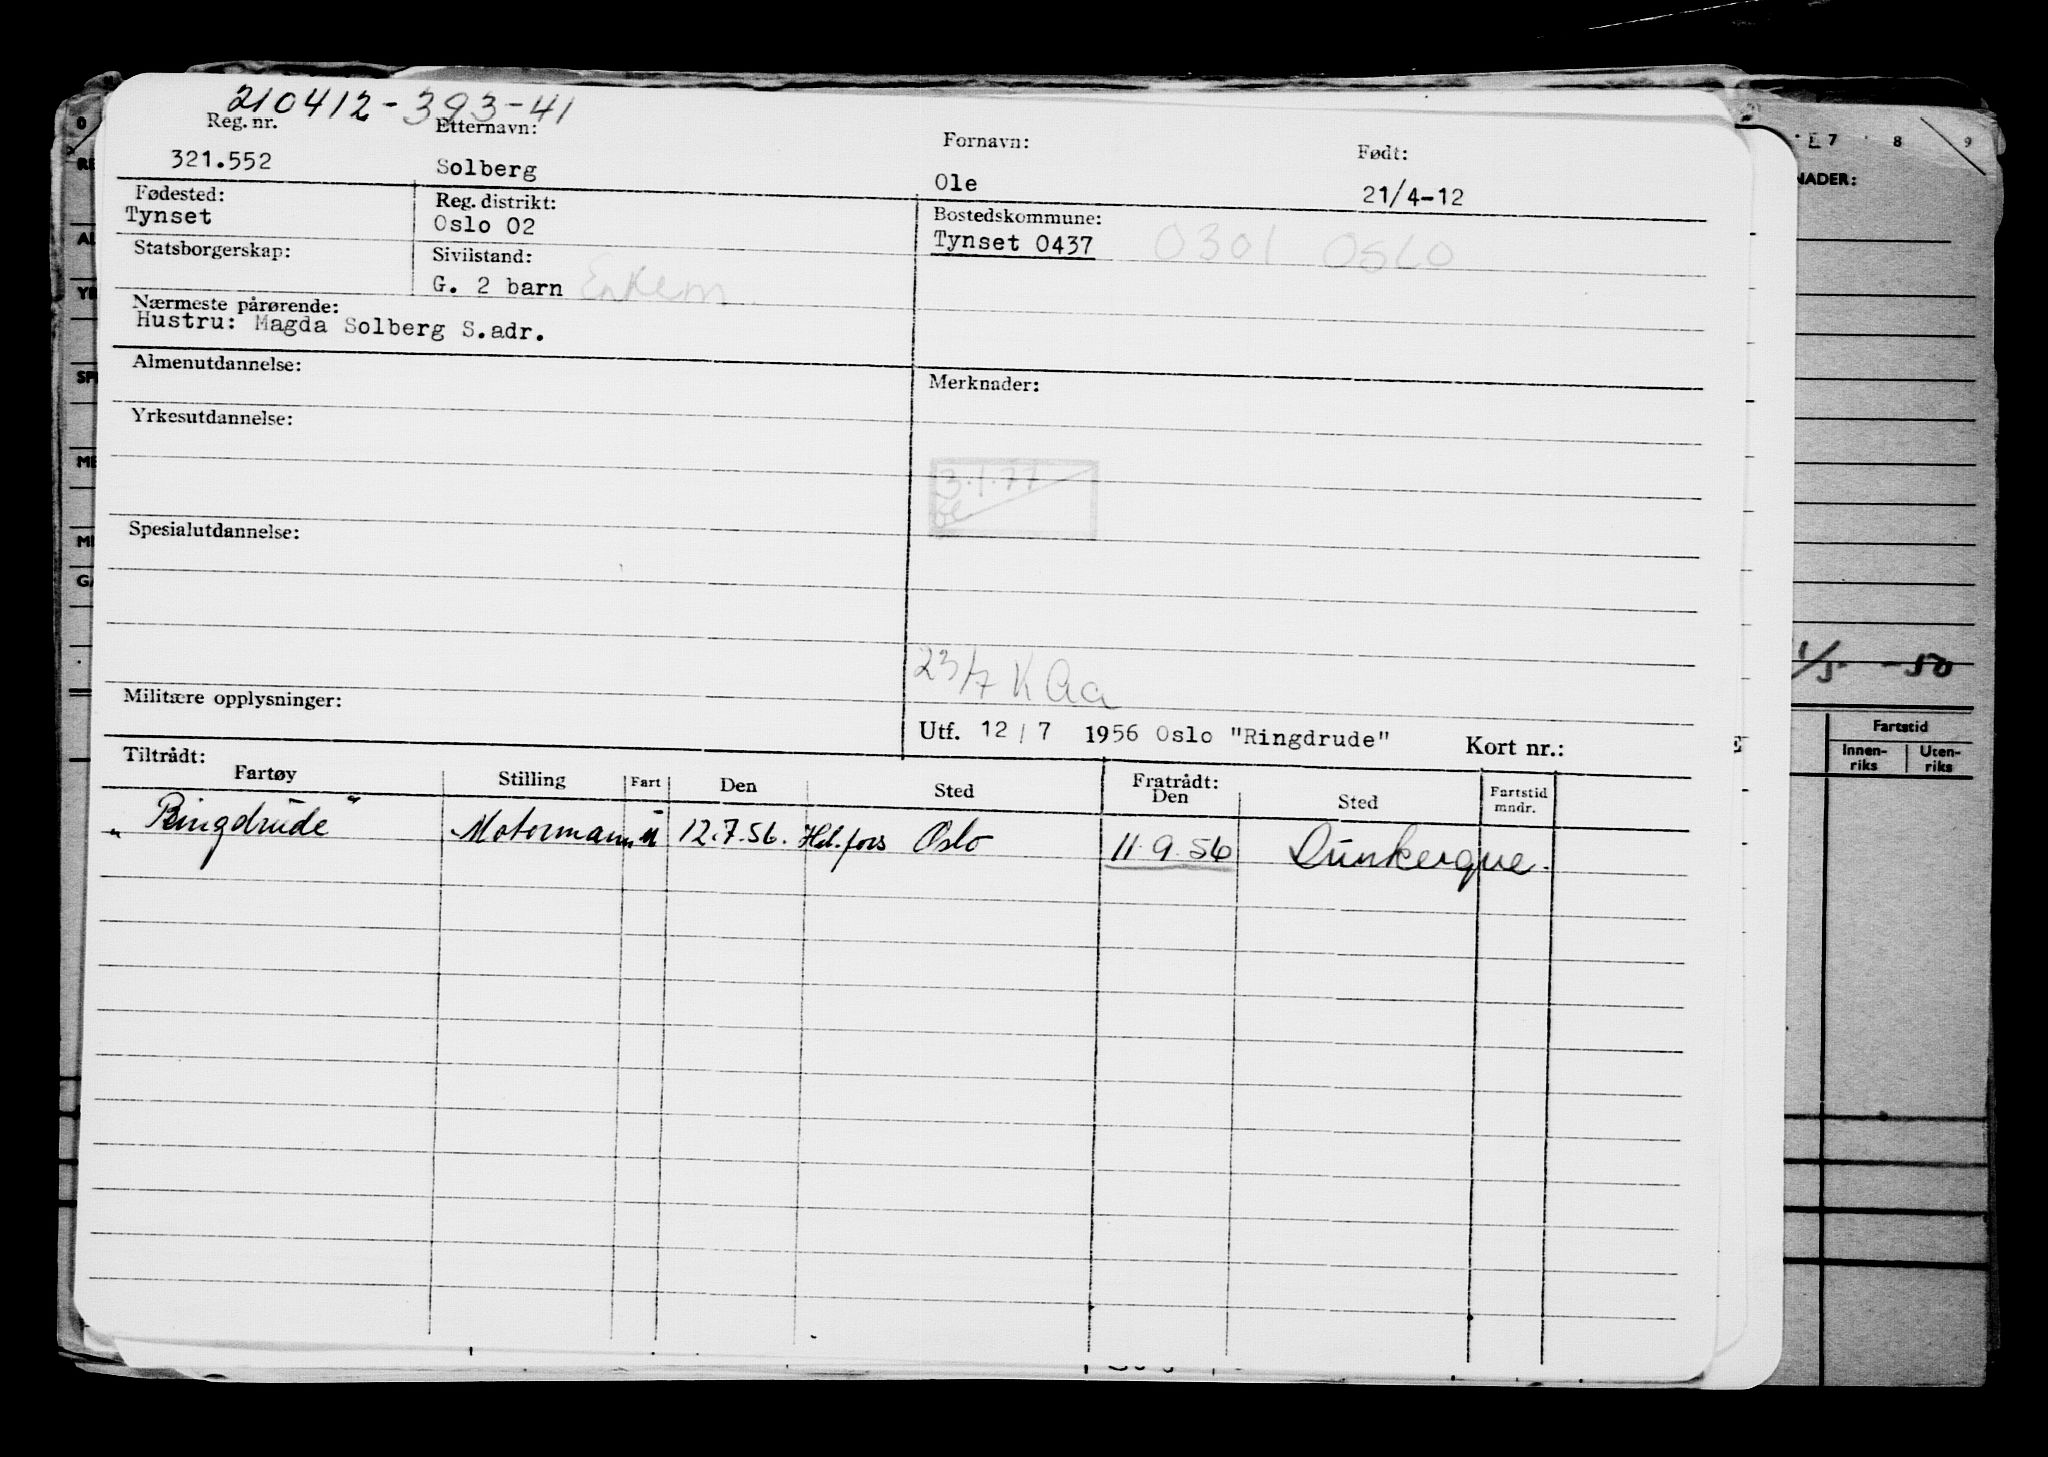 210412-393-41
Reg. nr. Etternavn: Fornavn: Født:
321.552 Solberg Ole 21/4-12
Fødested: Reg. distrikt: Bostedskommune:
Tynset Oslo 02 Tynset 0437 0301 OSLO
Statsborgerskap: Sivilstand:
G. 2 barn Enkem.
Nærmeste pårørende:
Hustru: Magda Solberg S.adr.
Almenutdannelse: Merknader:
Yrkesutdannelse:
3.1.77
Spesialutdannelse:
23/7 K Aa
Militære opplysninger:
Utf. 12/7 1956 Oslo "Ringdrude" Kort nr.:
Tiltrådt: Fratrådt:
Fartøy Stilling Fart Den Sted Den Sted Fartstid mndr.
"Ringdrude" Motormann u 12.7.56. Hel.fors Oslo 11.9.56 Dunkerque.
7 8 9
NADER:
1/5 -50
Fartstid
Innen-riks Uten-riks